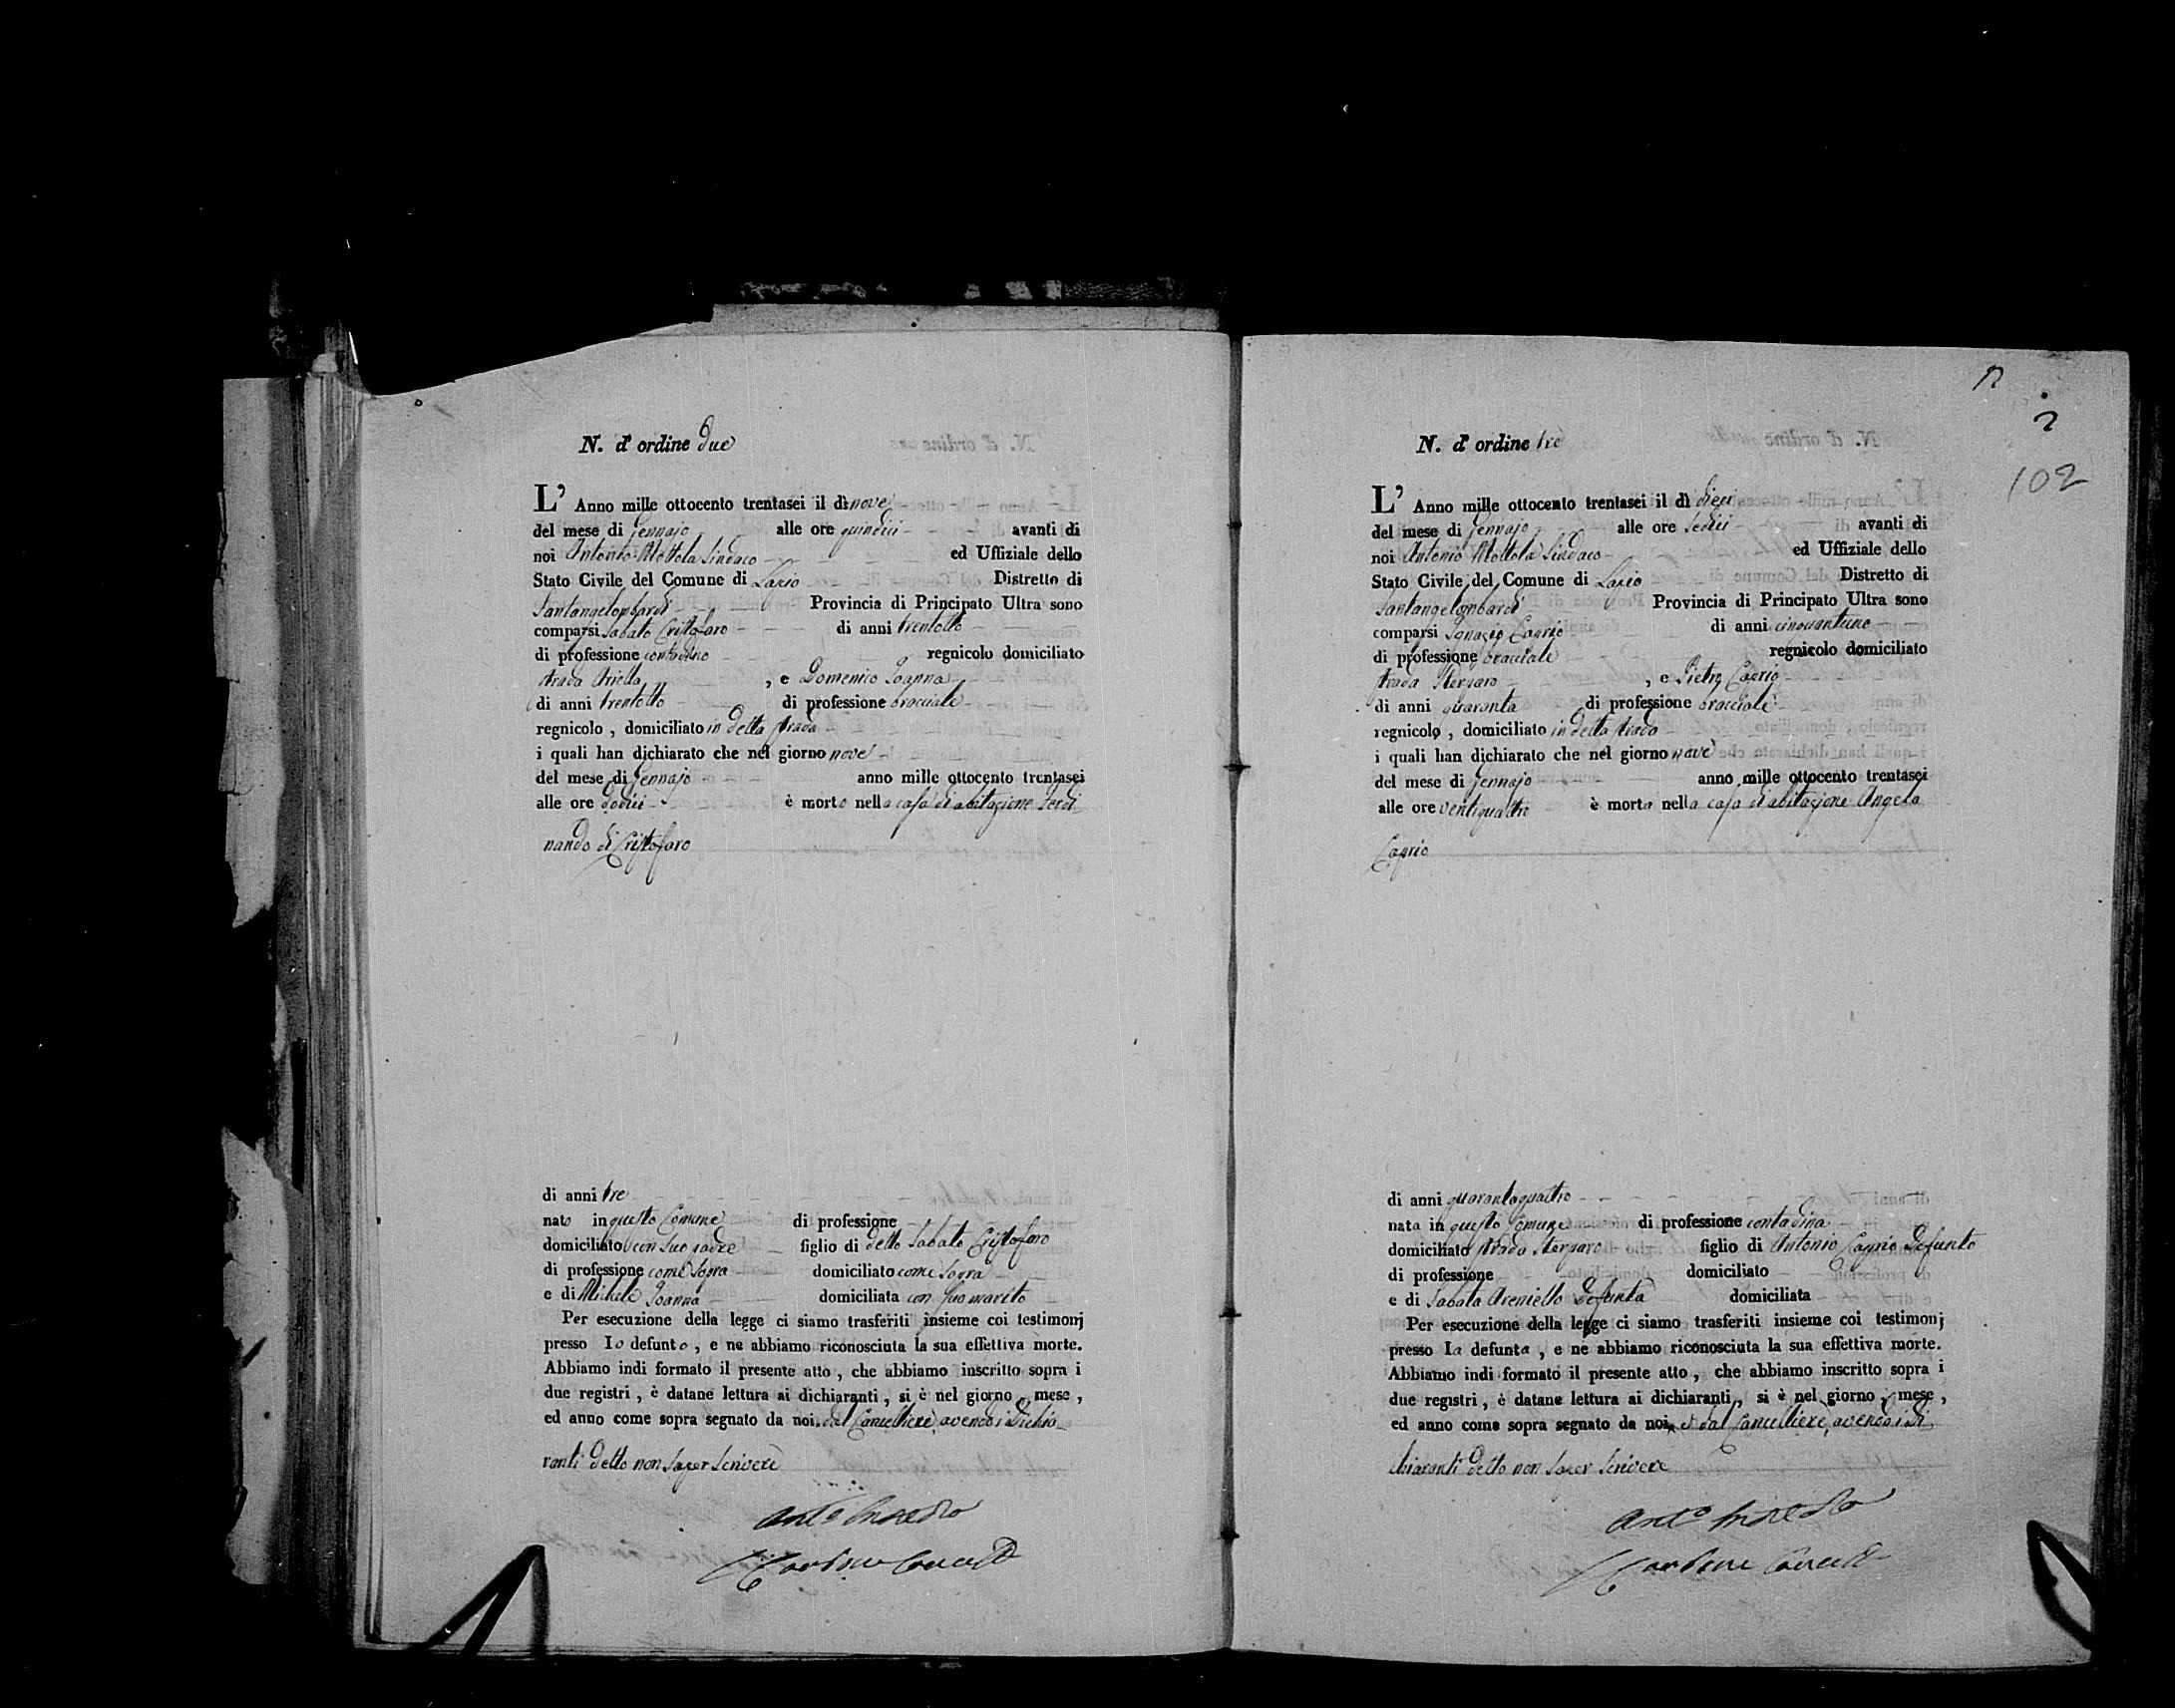 N. d' ordine due
L' Anno mille ottocento trentasei il dì nove
del mese di Gennajo alle ore quindici avanti di
noi Antonio Mottola Sindaco ed Uffiziale dello
Stato Civile del Comune di Lapio Distretto di
Santangelombardi Provincia di Principato Ultra sono
comparsi Sabato Cristofaro di anni trentotto
di professione contadino regnicolo domiciliato
strada Ariella , e Domenico Joanna
di anni trentotto di professione bracciale
regnicolo , domiciliato in detta strada
i quali han dichiarato che nel giorno nove
del mese di Gennajo anno mille ottocento trentasei
alle ore dodici è morto nella casa di abitazione Ferdi
nando di Cristofaro
di anni tre
nato in questo Comune di professione
domiciliato con suo padre figlio di detto Sabato Cristofaro
di professione come sopra domiciliato come sopra
e di Michele Joanna domiciliata con suo marito
Per esecuzione della legge ci siamo trasferiti insieme coi testimonj
presso lo defunto , e ne abbiamo riconosciuta la sua effettiva morte.
Abbiamo indi formato il presente atto , che abbiamo inscritto sopra i
due registri , è datane lettura ai dichiaranti , si è nel giorno , mese ,
ed anno come sopra segnato da noi, dal Cancelliere, avendo i Dichia
ranti detto non saper scrivere
N. d' ordine tre
17
2
102
L' Anno mille ottocento trentasei il dì dieci
del mese di Gennajo alle ore sedici avanti di
noi Antonio Mottola Sindaco ed Uffiziale dello
Stato Civile del Comune di Lapio Distretto di
Santangelombardi Provincia di Principato Ultra sono
comparsi Ignazio Caprio di anni cinquantuno
di professione bracciale regnicolo domiciliato
strada , e Pietro Caprio
di anni quaranta di professione bracciale
regnicolo , domiciliato in detta strada
i quali han dichiarato che nel giorno nove
del mese di Gennajo anno mille ottocento trentasei
alle ore ventiquattro è morta nella casa di abitazione Angela
Caprio
di anni quarantaquattro
nata in questo Comune di professione contadina
domiciliato strada figlio di Antonio Caprio Defunto
di professione domiciliato
e di Sabata Areniello Defunta domiciliata
Per esecuzione della legge ci siamo trasferiti insieme coi testimonj
presso la defunta , e ne abbiamo riconosciuta la sua effettiva morte.
Abbiamo indi formato il presente atto , che abbiamo inscritto sopra i
due registri , è datane lettura ai dichiaranti , si è nel giorno , mese ,
ed anno come sopra segnato da noi, e dal Cancelliere, avendo i Di
chiaranti detto non saper scrivere